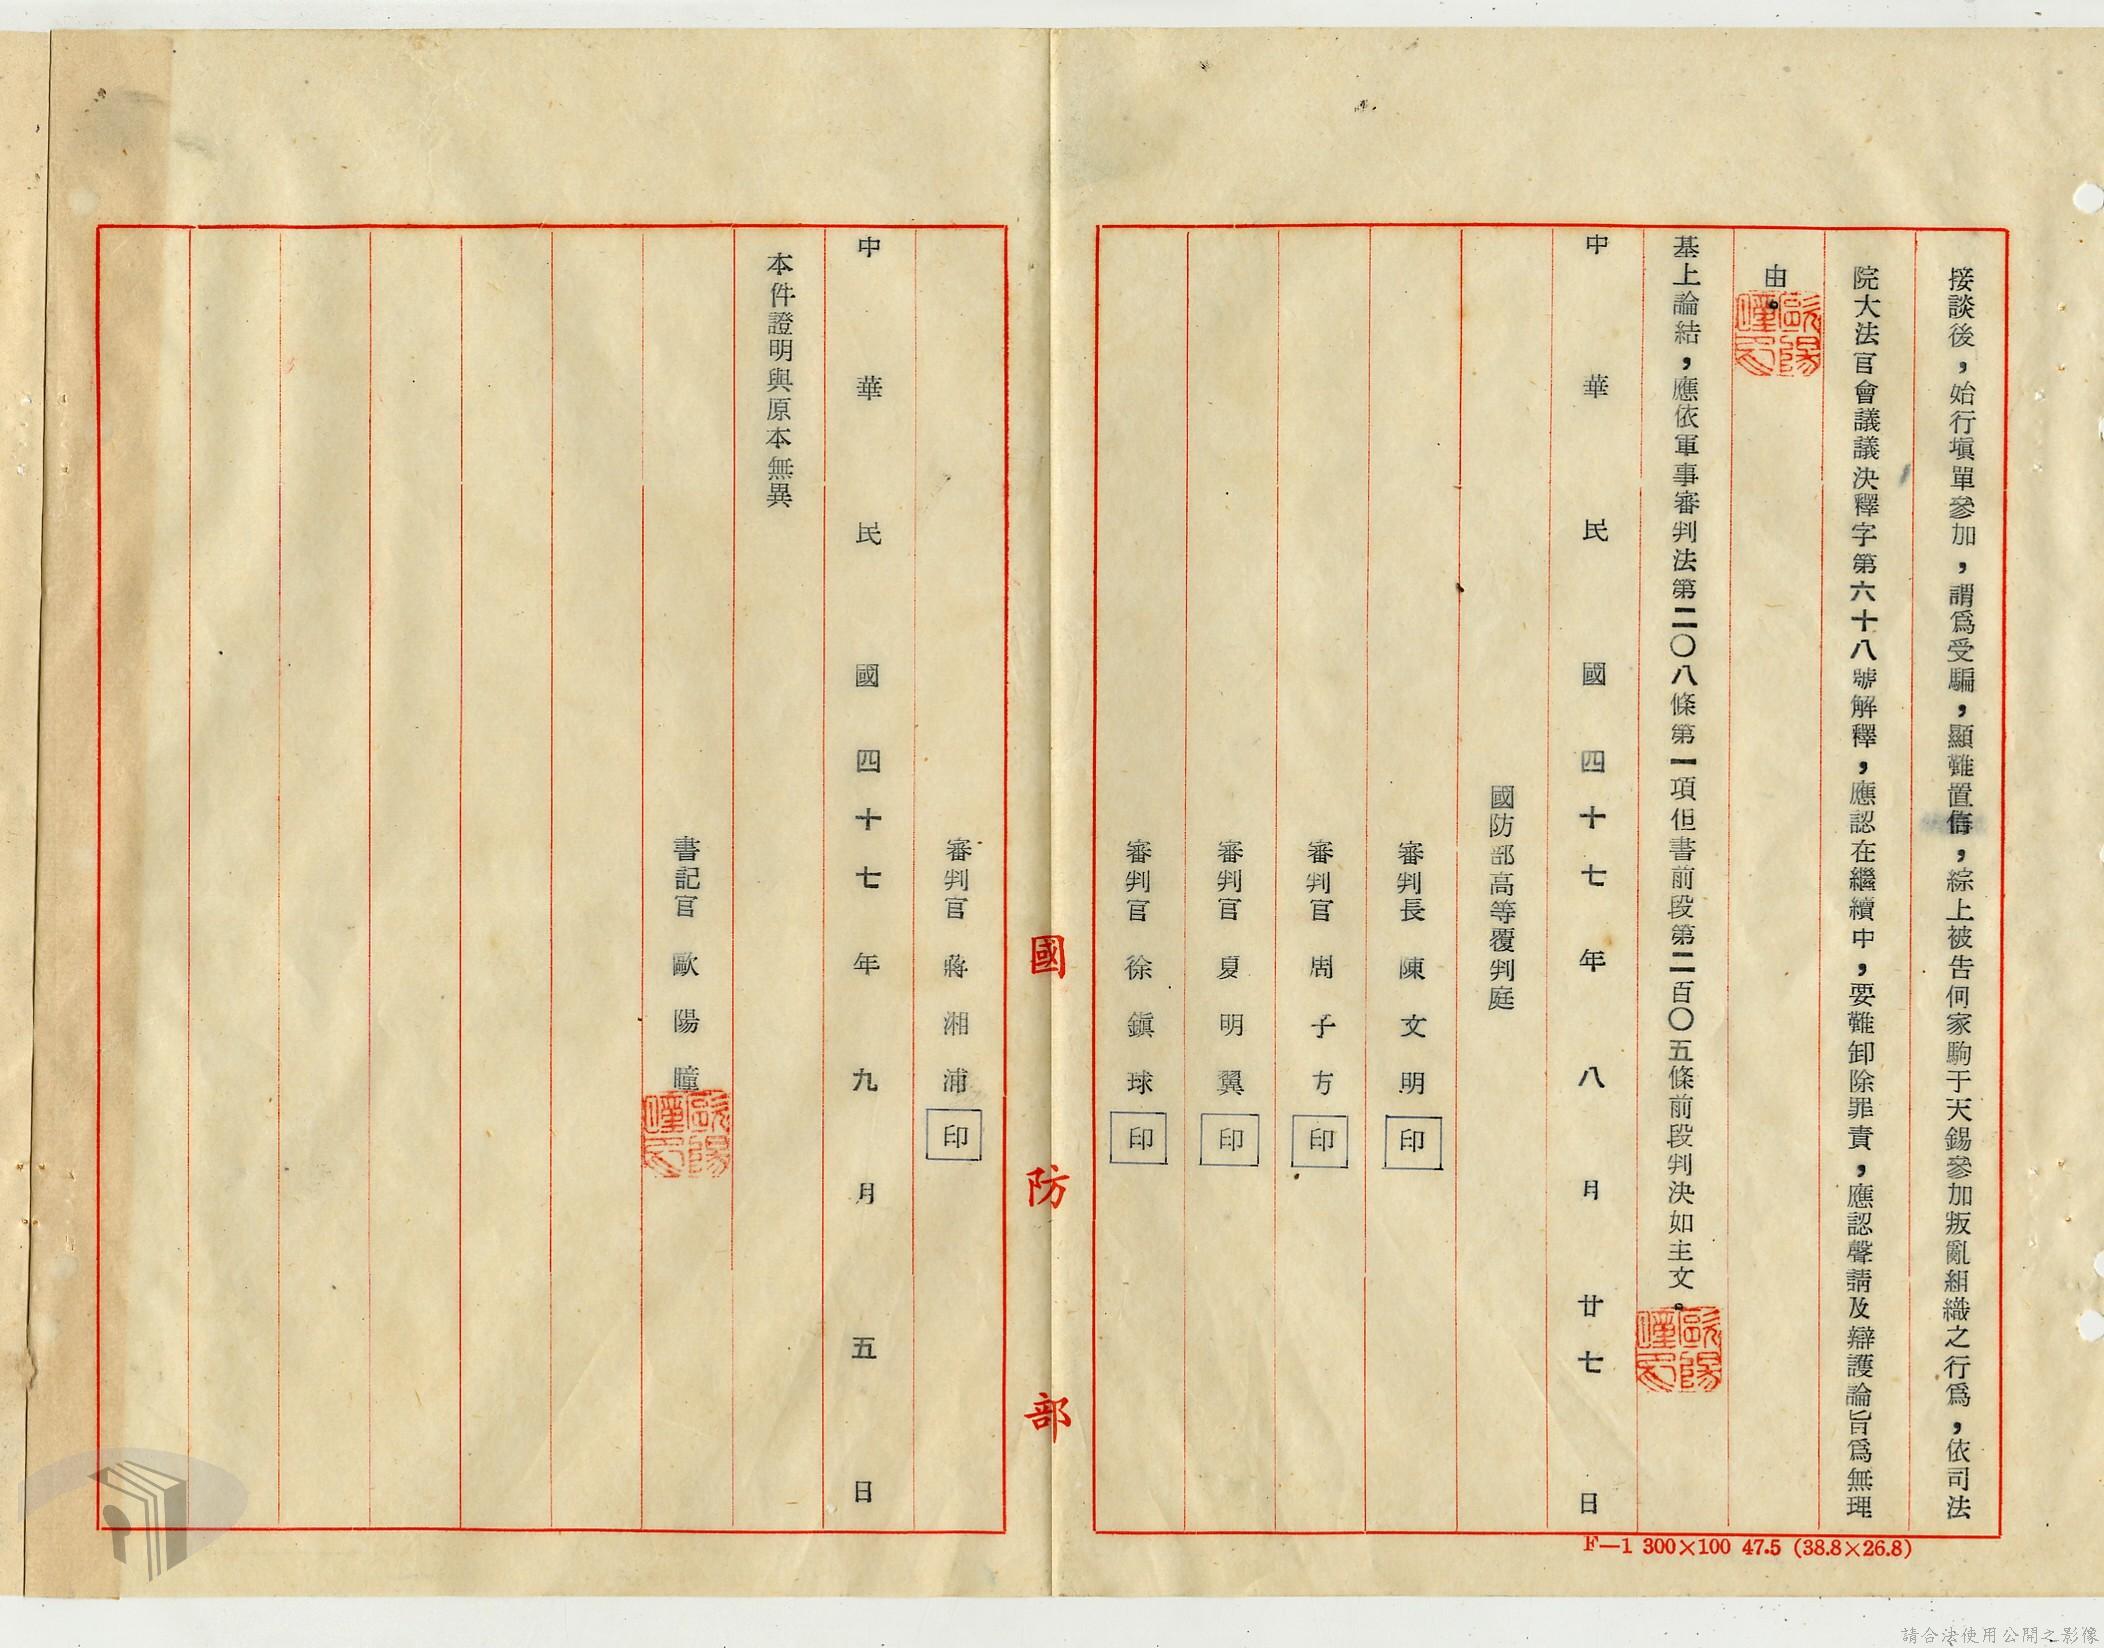 接談後，始行塡單參加，謂爲受騙，顯難置信，綜上被告何家駒于天錫參加叛亂組織之行爲，依司法
院大法官會議議決釋字第六十八號解釋，應認在繼續中，要難卸除罪責，應認聲請及辯護論旨爲無理
由。
基上論結，應依軍事審判法第二〇八條第一項但書前段第二百〇五條前段判決如主文。
中華民國四十七年八月廿七日
國防部高等覆判庭
審判長 陳文明 印
審判官 周子方 印
審判官 夏明翼 印
審判官 徐鎭球 印
國防部
審判官 蔣湘浦 印
中華民國四十七年九月五日
本件證明與原本無異
書記官 歐陽瞳
F—1 300×100 47.5 (38.8×26.8)
請合法使用公開之影像